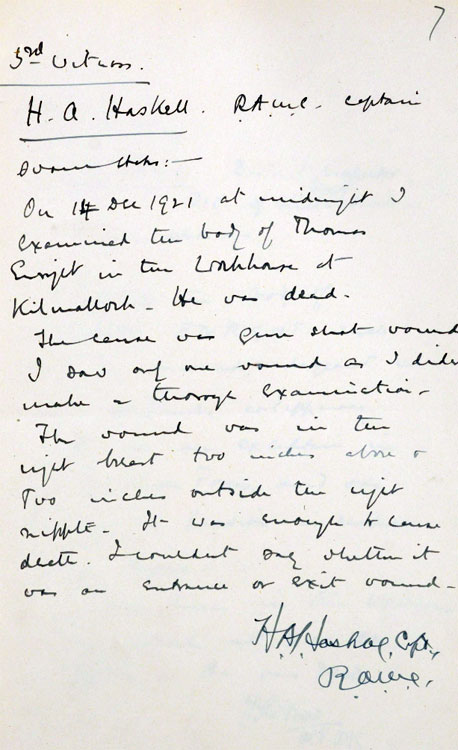 7
3rd Witness.
H. A. Haskell. R.A.M.C. Captain
Sworn states:-
On 14 Dec 1921 at midnight I
examined the body of Thomas
Enright in the Workhouse at
Kilmallock - He was dead.
The cause was gun shot wound
I saw only one wound as I didn
make a thorough examination -
The wound was in the
right breast two inches above &
Two inches outside the right
nipple - It was enough to cause
death. I couldn't say whether it
was an entrance or exit wound -
H A Haskell, Capt,
R.A.M.C.